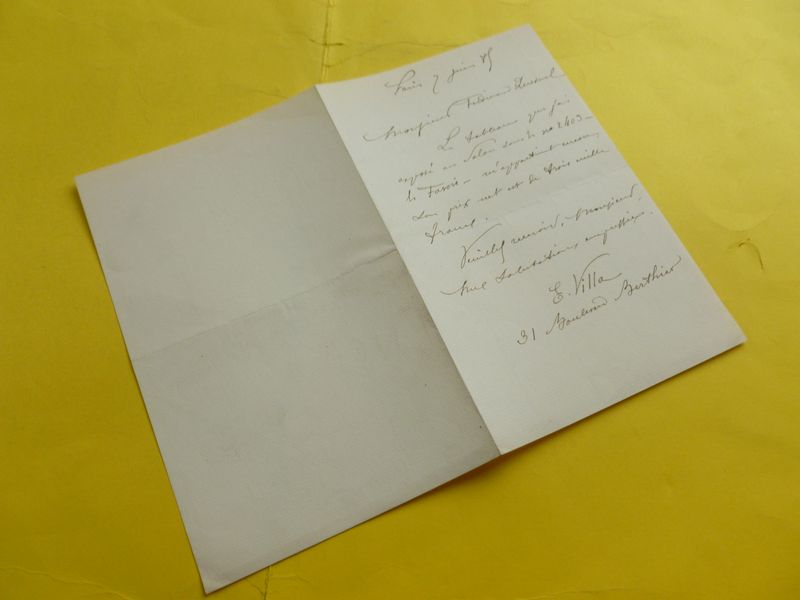 Paris 7 juin 85
Monsieur
Le tableau que j'ai
exposé au Salon sous le no 2403 –
le Favori – m'appartient encore,
Son prix net est de trois mille
francs.
Veuillez recevoir, Monsieur,
mes salutations empressées.
E. Villa
31 Boulevard Berthier